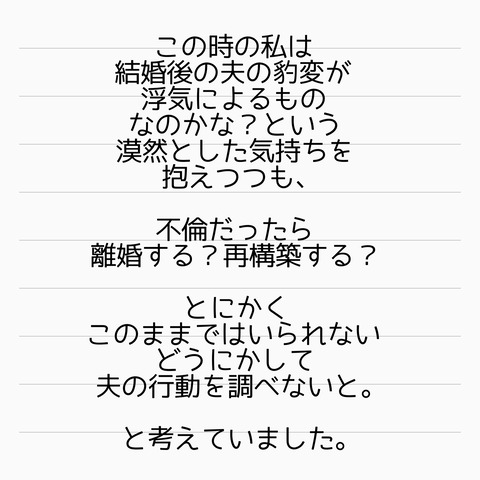 この時の私は
結婚後の夫の豹変が
浮気によるもの
なのかな？という
漠然とした気持ちを
抱えつつも、
不倫だったら
離婚する？再構築する？
とにかく
このままではいられない
どうにかして
夫の行動を調べないと。
と考えていました。